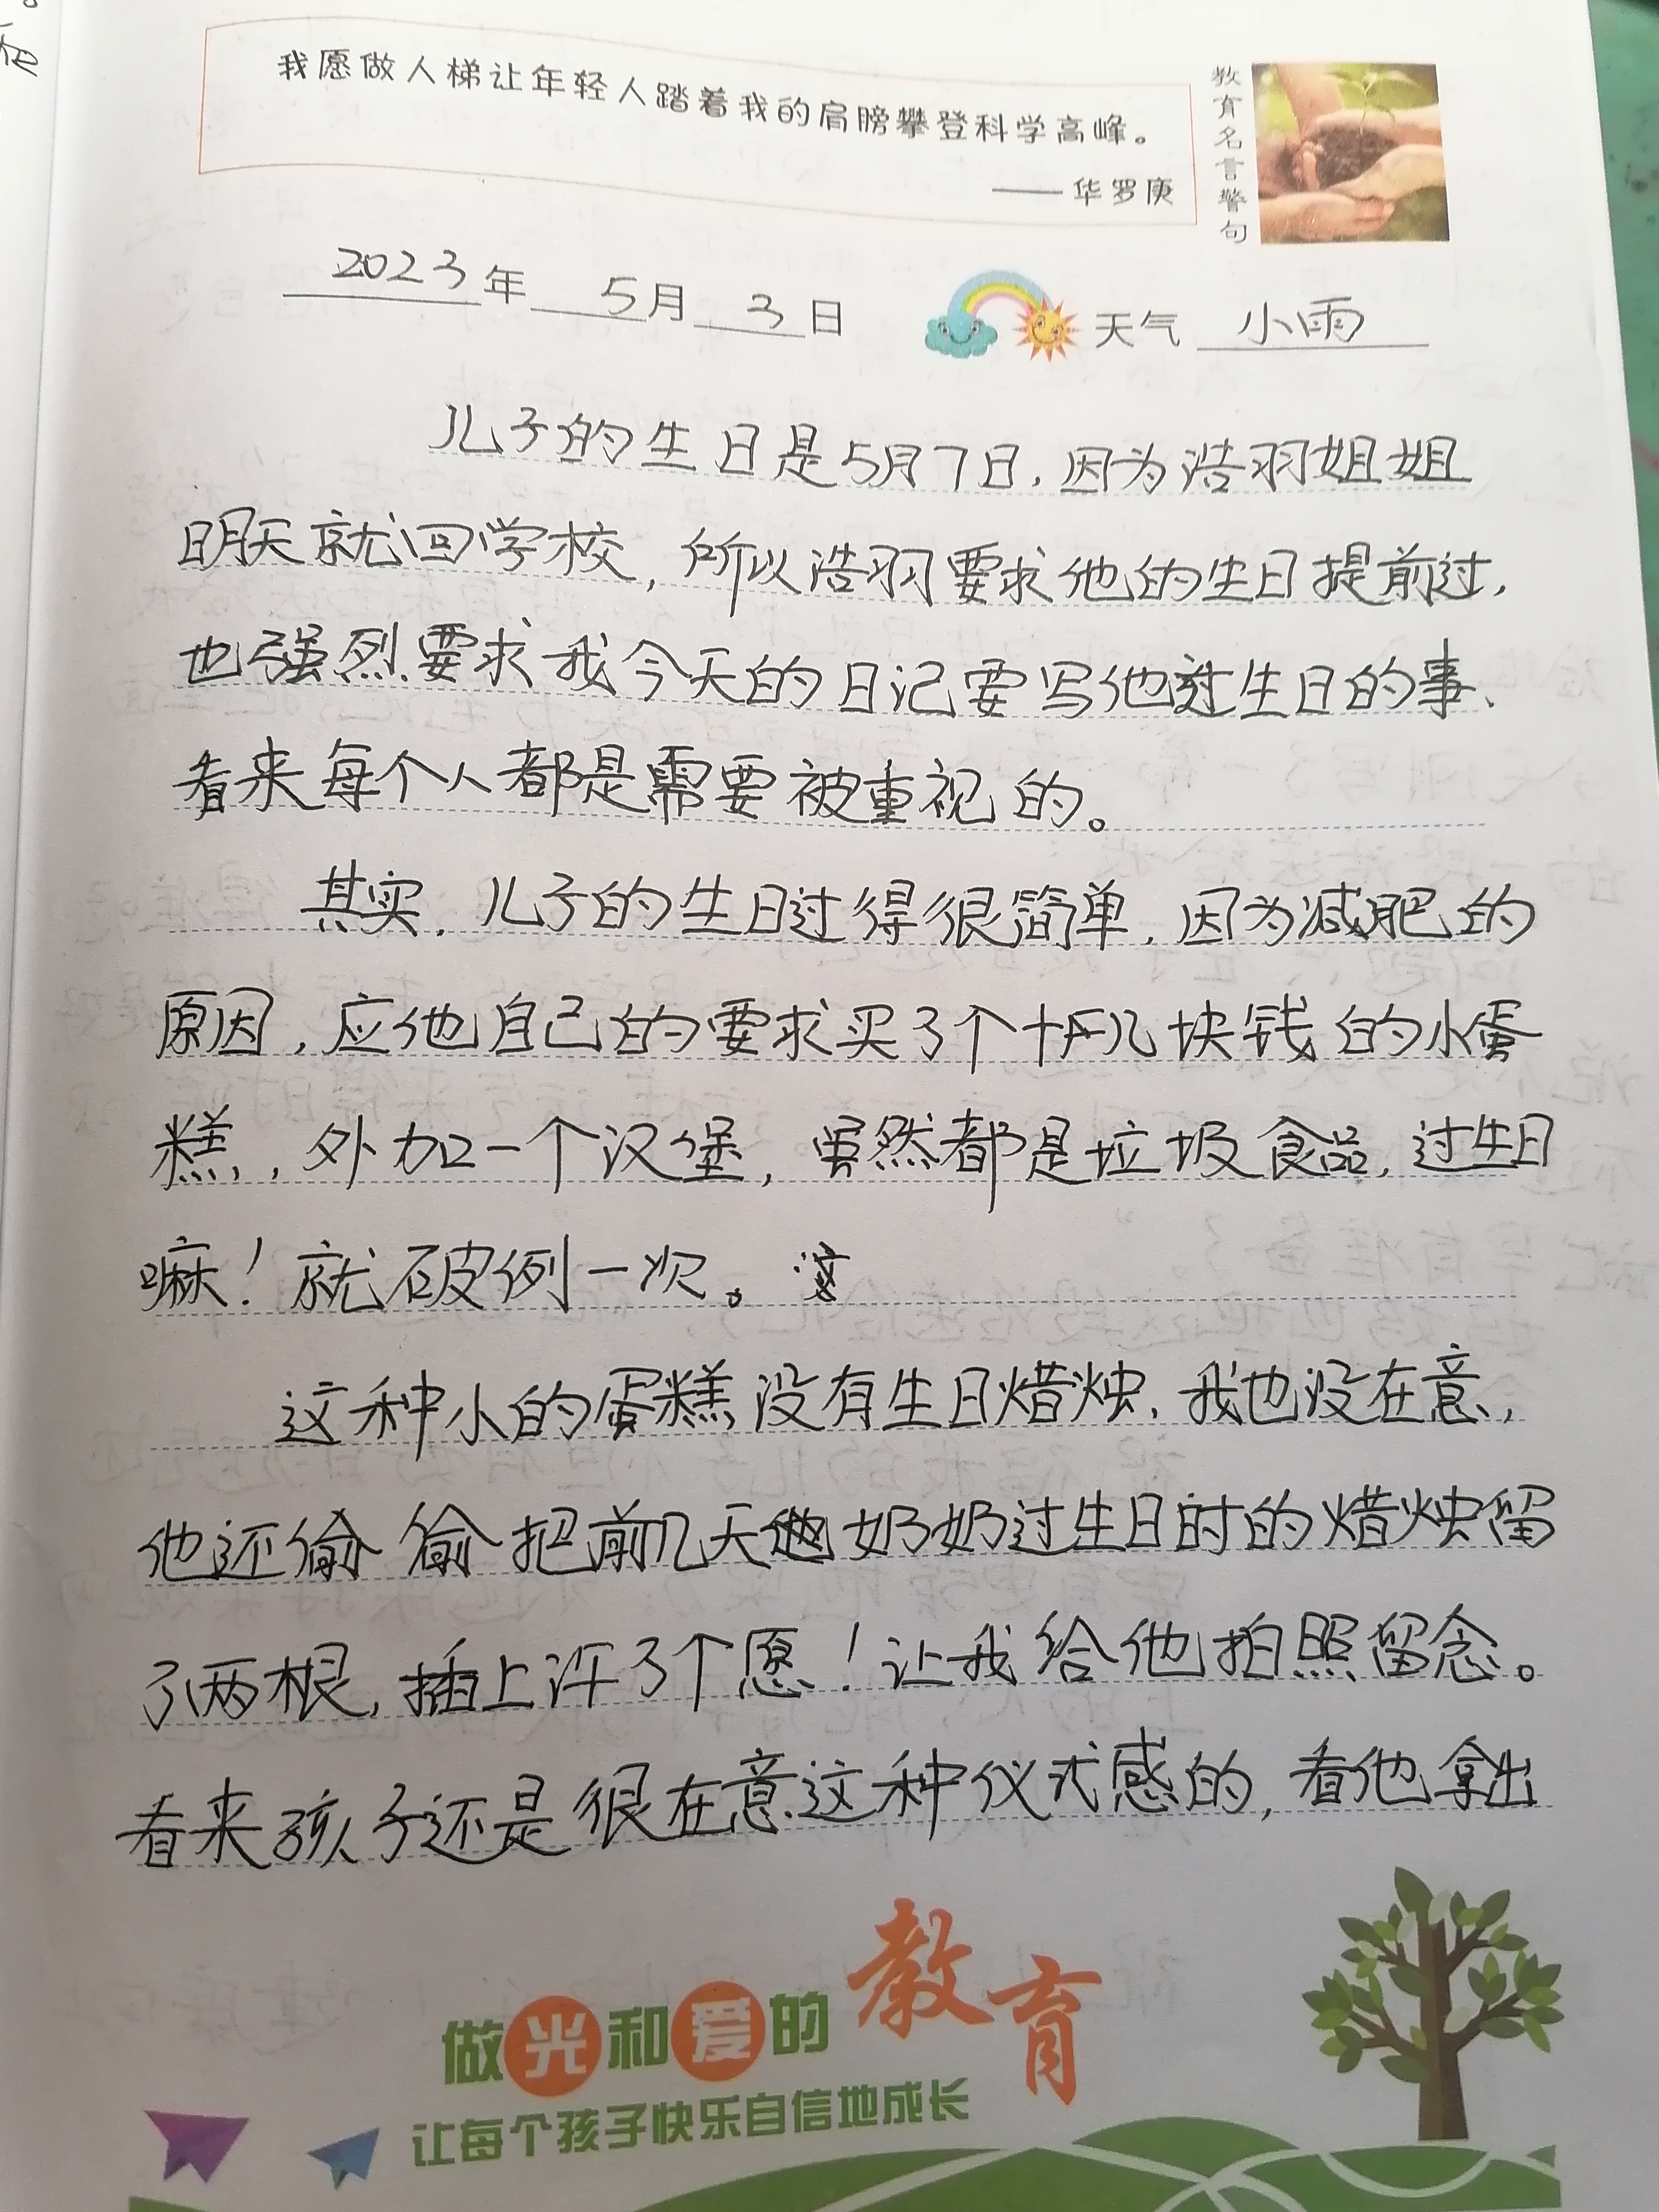 我愿做人梯让年轻人踏着我的肩膀攀登科学高峰。
——华罗庚
教育名言警句
2023年 5月 3日
天气 小雨
儿子的生日是5月7日,因为浩羽姐姐
明天就回学校,所以浩羽要求他的生日提前过,
也强烈要求我今天的日记要写他过生日的事、
看来每个人都是需要被重视的。
其实,儿子的生日过得很简单,因为减肥的
原因,应他自己的要求买了个十几块钱的小蛋
糕,外加一个汉堡,虽然都是垃圾食品,过生日
嘛!就破例一次。
这种小的蛋糕没有生日惜烛,我也没在意,
他还偷偷把前几天他奶奶过生日时的惜烛留
了两根,插上许了个愿!让我给他拍照留念。
看来孩子还是很在意这种仪式感的,看他拿出
做光和爱的教育
让每个孩子快乐自信地成长